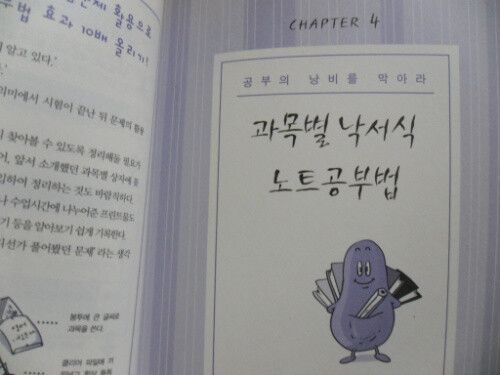 활용으로
효과 10배 올리기!
알고 있다.'
의미에서 시험이 끝난 뒤 문제의 활용
찾아볼 수 있도록 정리해둘 필요가
어, 앞서 소개했던 과목별 상자에 풀
입하여 정리하는 것도 바람직하다.
나 수업시간에 나누어준 프린트물도
기 등을 알아보기 쉽게 기록한다.
디선가 풀어봤던 문제'라는 생각
봉투에 큰 글씨로
과목을 쓴다.
클리어 파일에 키
CHAPTER 4
공부의 낭비를 막아라
과목별 낙서식
노트공부법